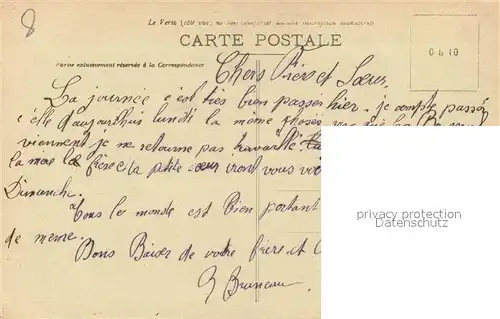 8
Le Verso (côté vue)
CARTE POSTALE
Partie exclusivement réservée à la Correspondance
Chers Frères et Sœur
La journée c'est très bien passée hier. je compte passé
celle d'aujourdhuis lundi la même choses
viennent je ne retourne pas travaillé
la mère le frère et la ptite sœur iront vous voir
Dimanche.
Tous le monde est Bien portant
de meme.
Bons Baiser de votre frère et
Bruneau
privacy protection
Datenschutz